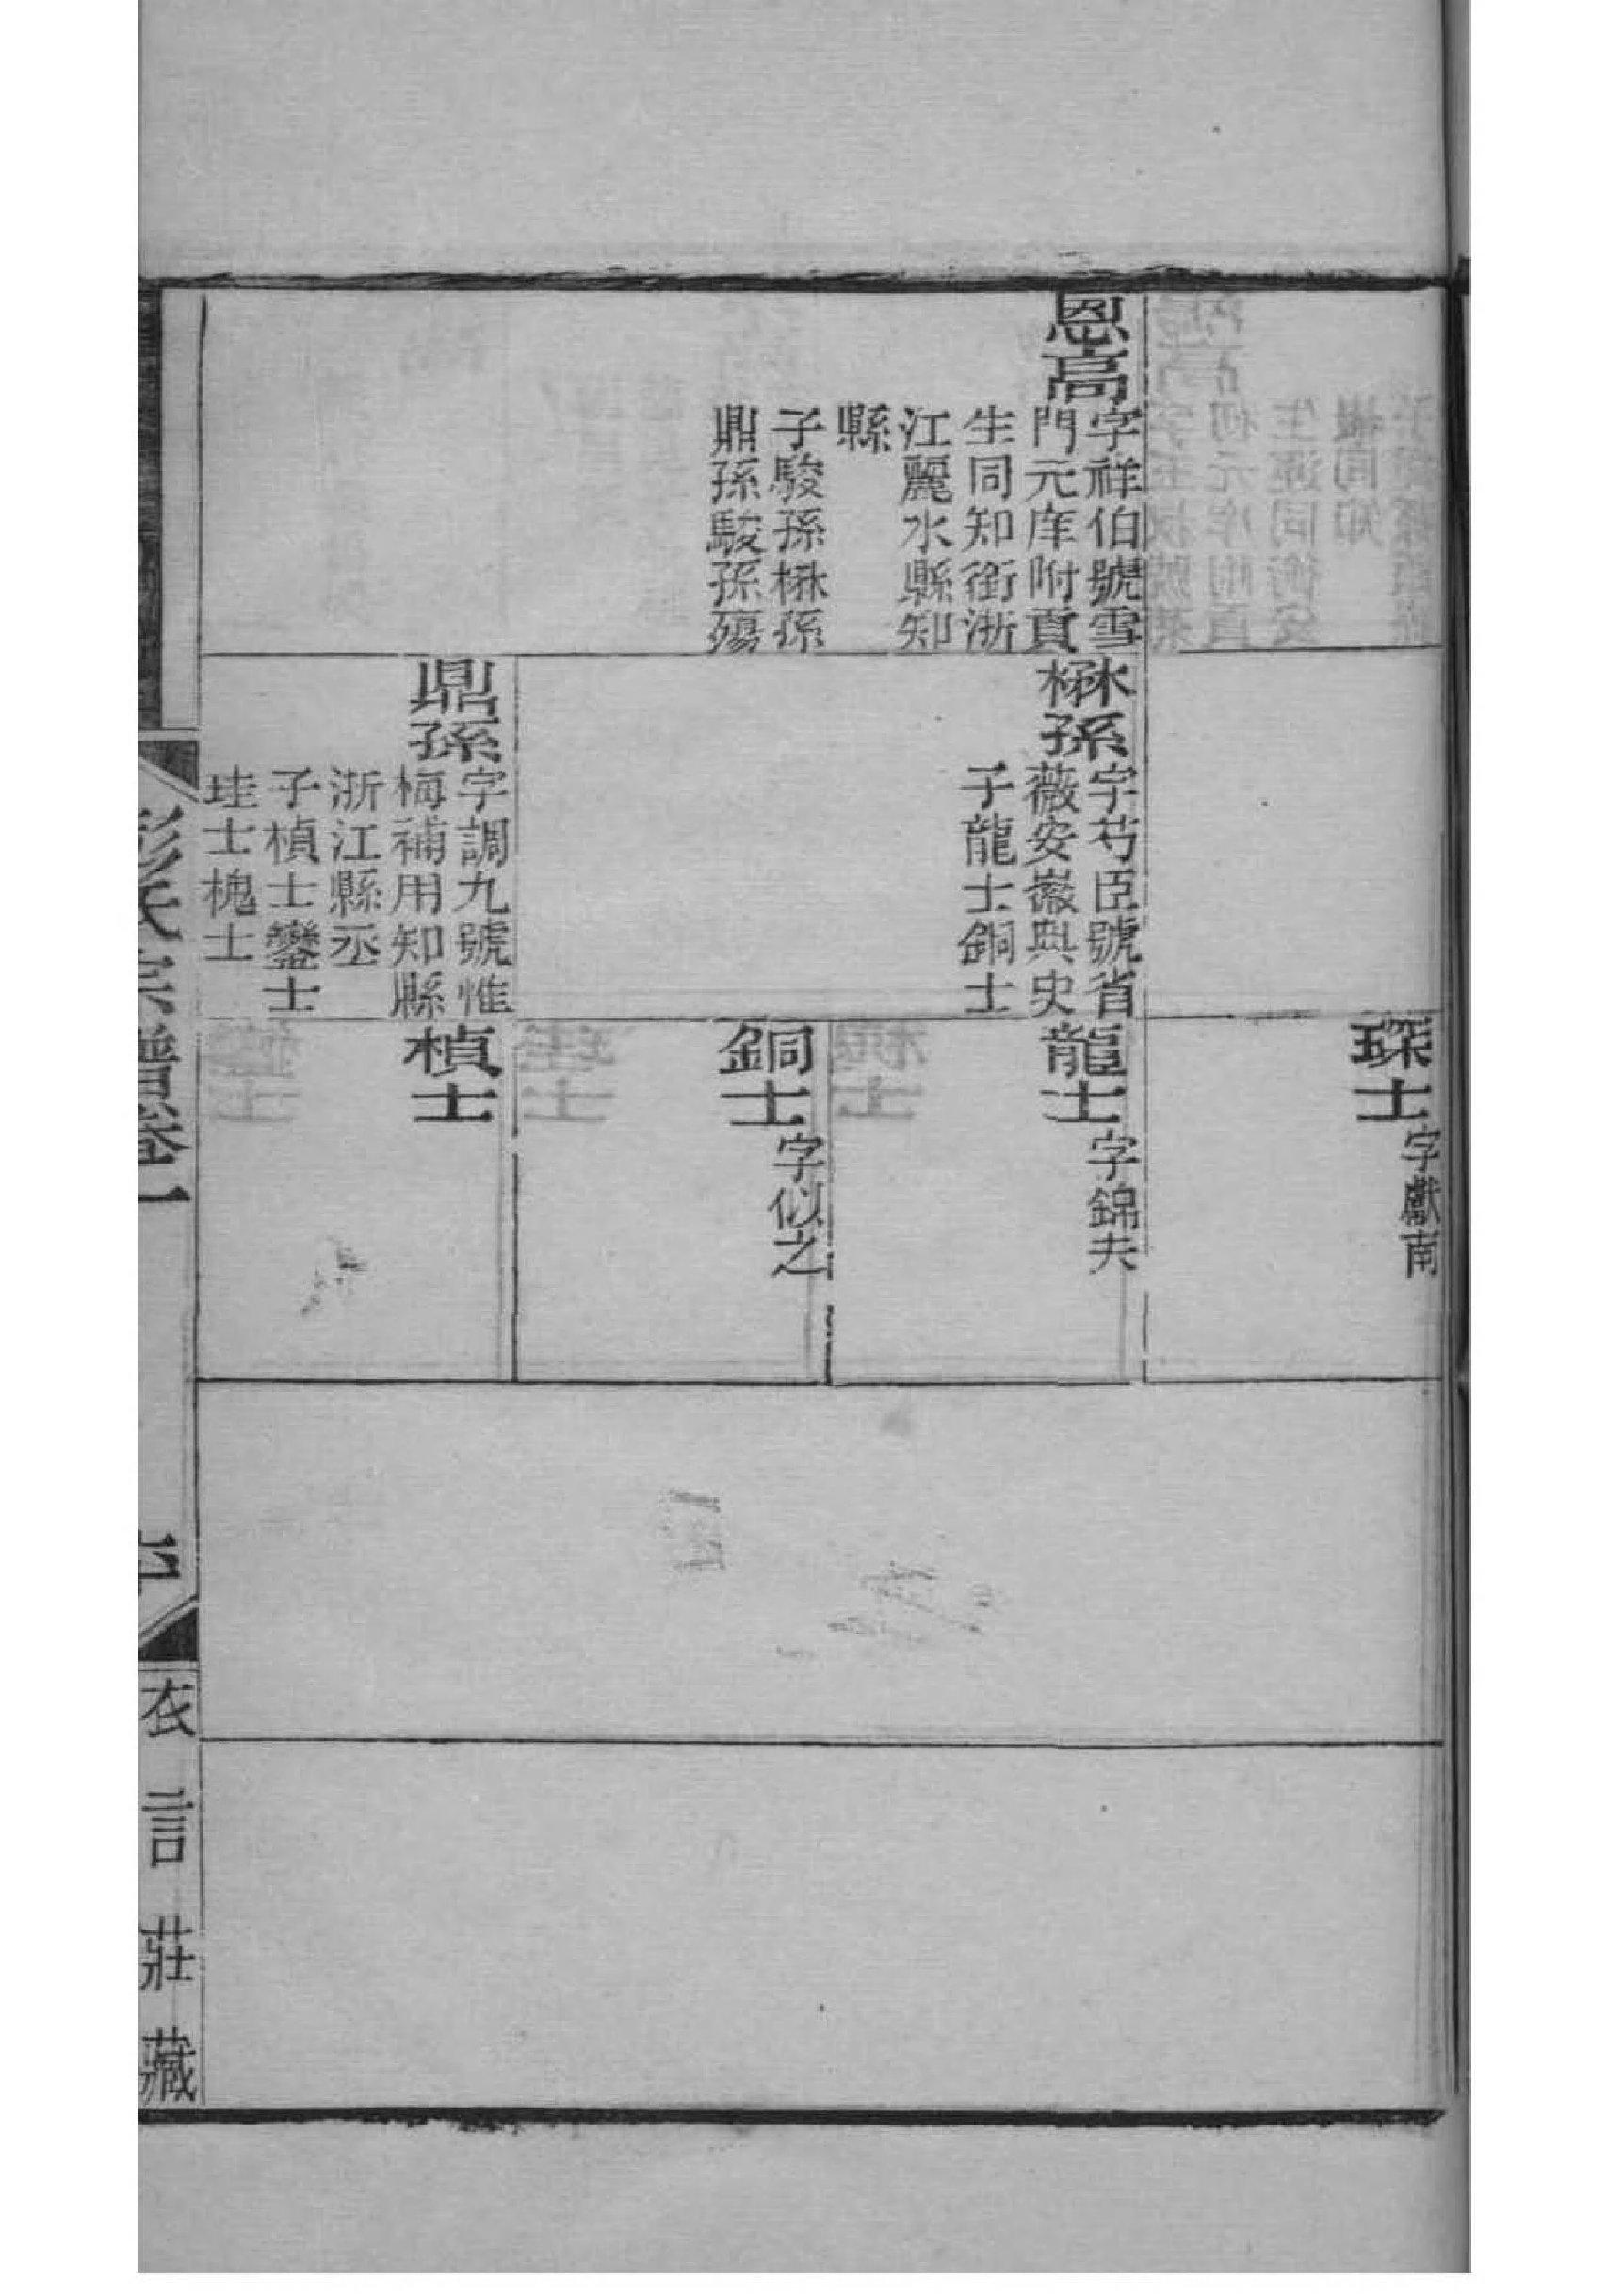 恩高
字祥伯號雪
門元庠附貢
生同知銜浙
江麗水縣知
縣
子駿孫楙孫
鼎孫駿孫殤
楙孫
字芍臣號省
薇安徽典史
子龍士銅士
鼎孫
字調九號惟
梅補用知縣
浙江縣丞
子楨士鑾士
珪士槐士
琛士
字獻南
龍士
字錦夫
銅士
字似之
楨士
彭氏宗譜卷一
衣言莊藏